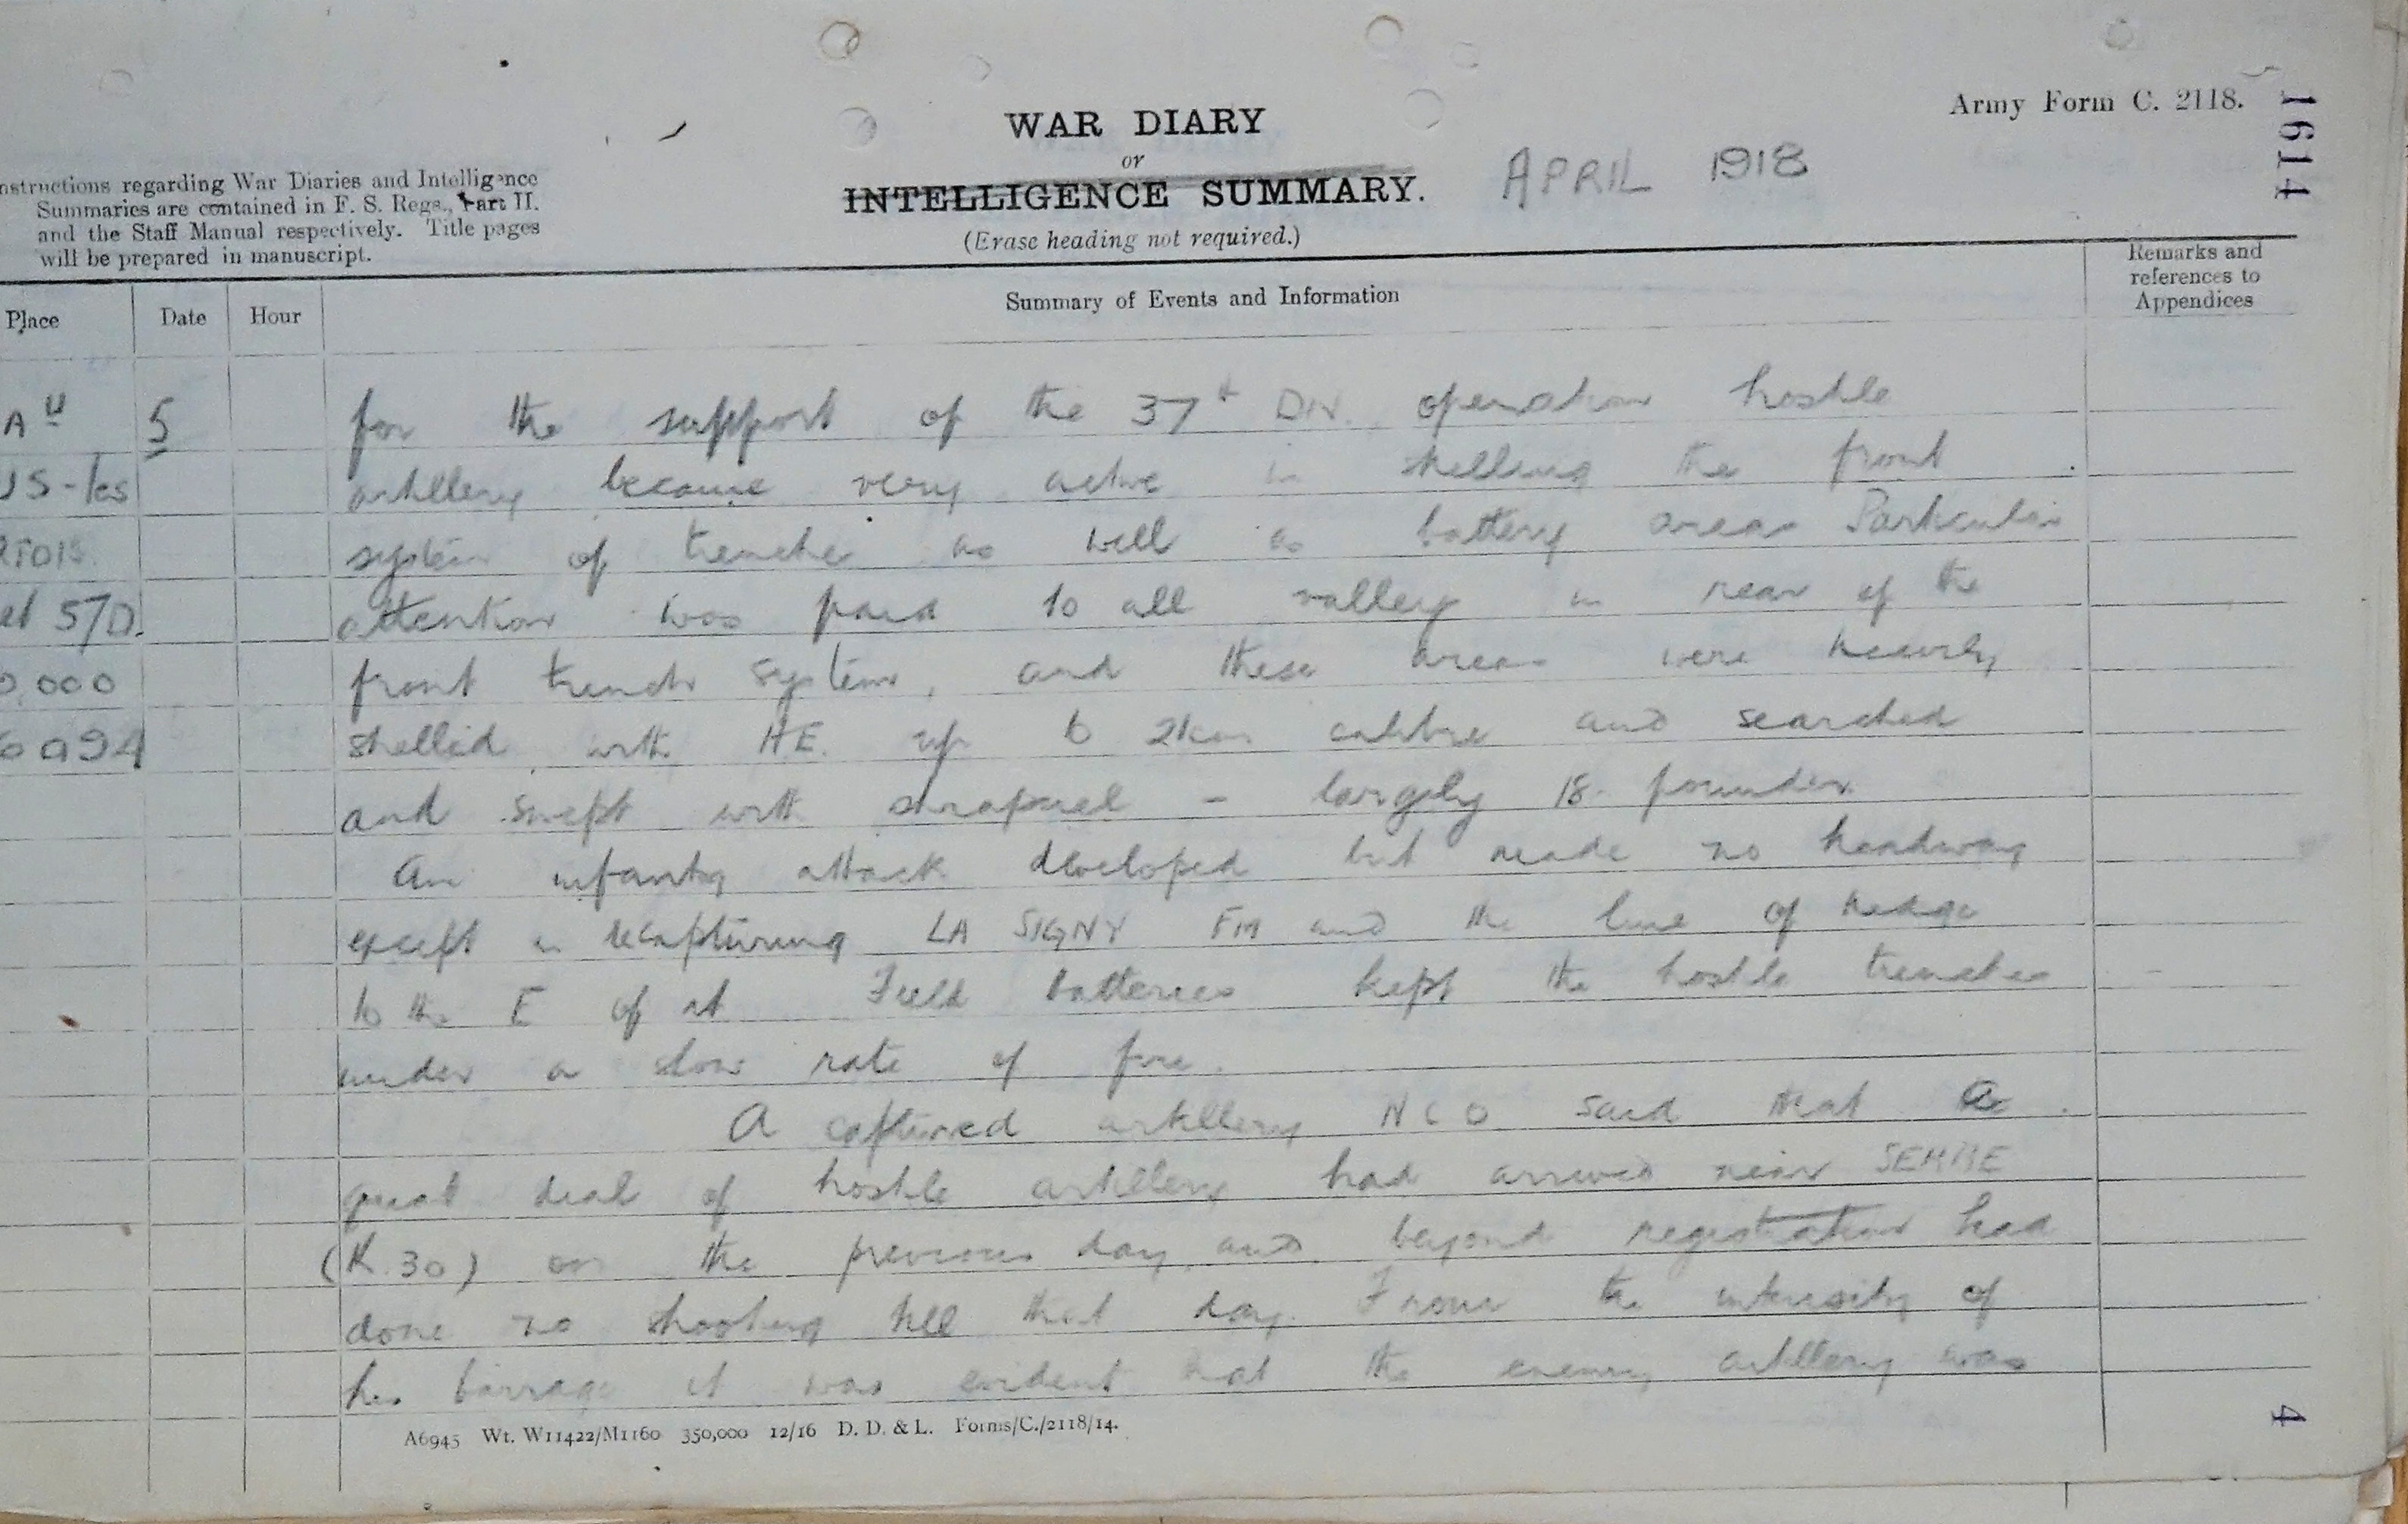 Army Form C. 2118.
1614
WAR DIARY
or
INTELLIGENCE SUMMARY.
APRIL 1918
(Erase heading not required.)
nstructions regarding War Diaries and Intelligence
Summaries are contained in F. S. Regs., Part II.
and the Staff Manual respectively. Title pages
will be prepared in manuscript.
Place
Date
Hour
Summary of Events and Information
Remarks and
references to
Appendices
A U
JS-les
RTOIS
et 57D.
0,000
6 a 9 4
5
for the support of the 37th DIV. operation hostile
artillery became very active in shelling the front
system of trenches as well as battery areas Particular
attention was paid to all valleys in rear of the
front trench system, and these areas were heavily
shelled with H.E. up to 21cm calibre and searched
and swept with shrapnel - largely 18 pounder.
An infantry attack developed but made no headway
except in recapturing LA SIGNY FM and the line of hedge
to the E of it Field batteries kept the hostile trenches
under a slow rate of fire.
A captured artillery NCO said that a
great deal of hostile artillery had arrived near SERRE
(K.30) on the previous day and beyond registration had
done no shooting till that day. From the intensity of
his barrage it was evident that the enemy artillery was
A6945 Wt. W11422/M1160 350,000 12/16 D. D. & L. Forms/C./2118/14.
4